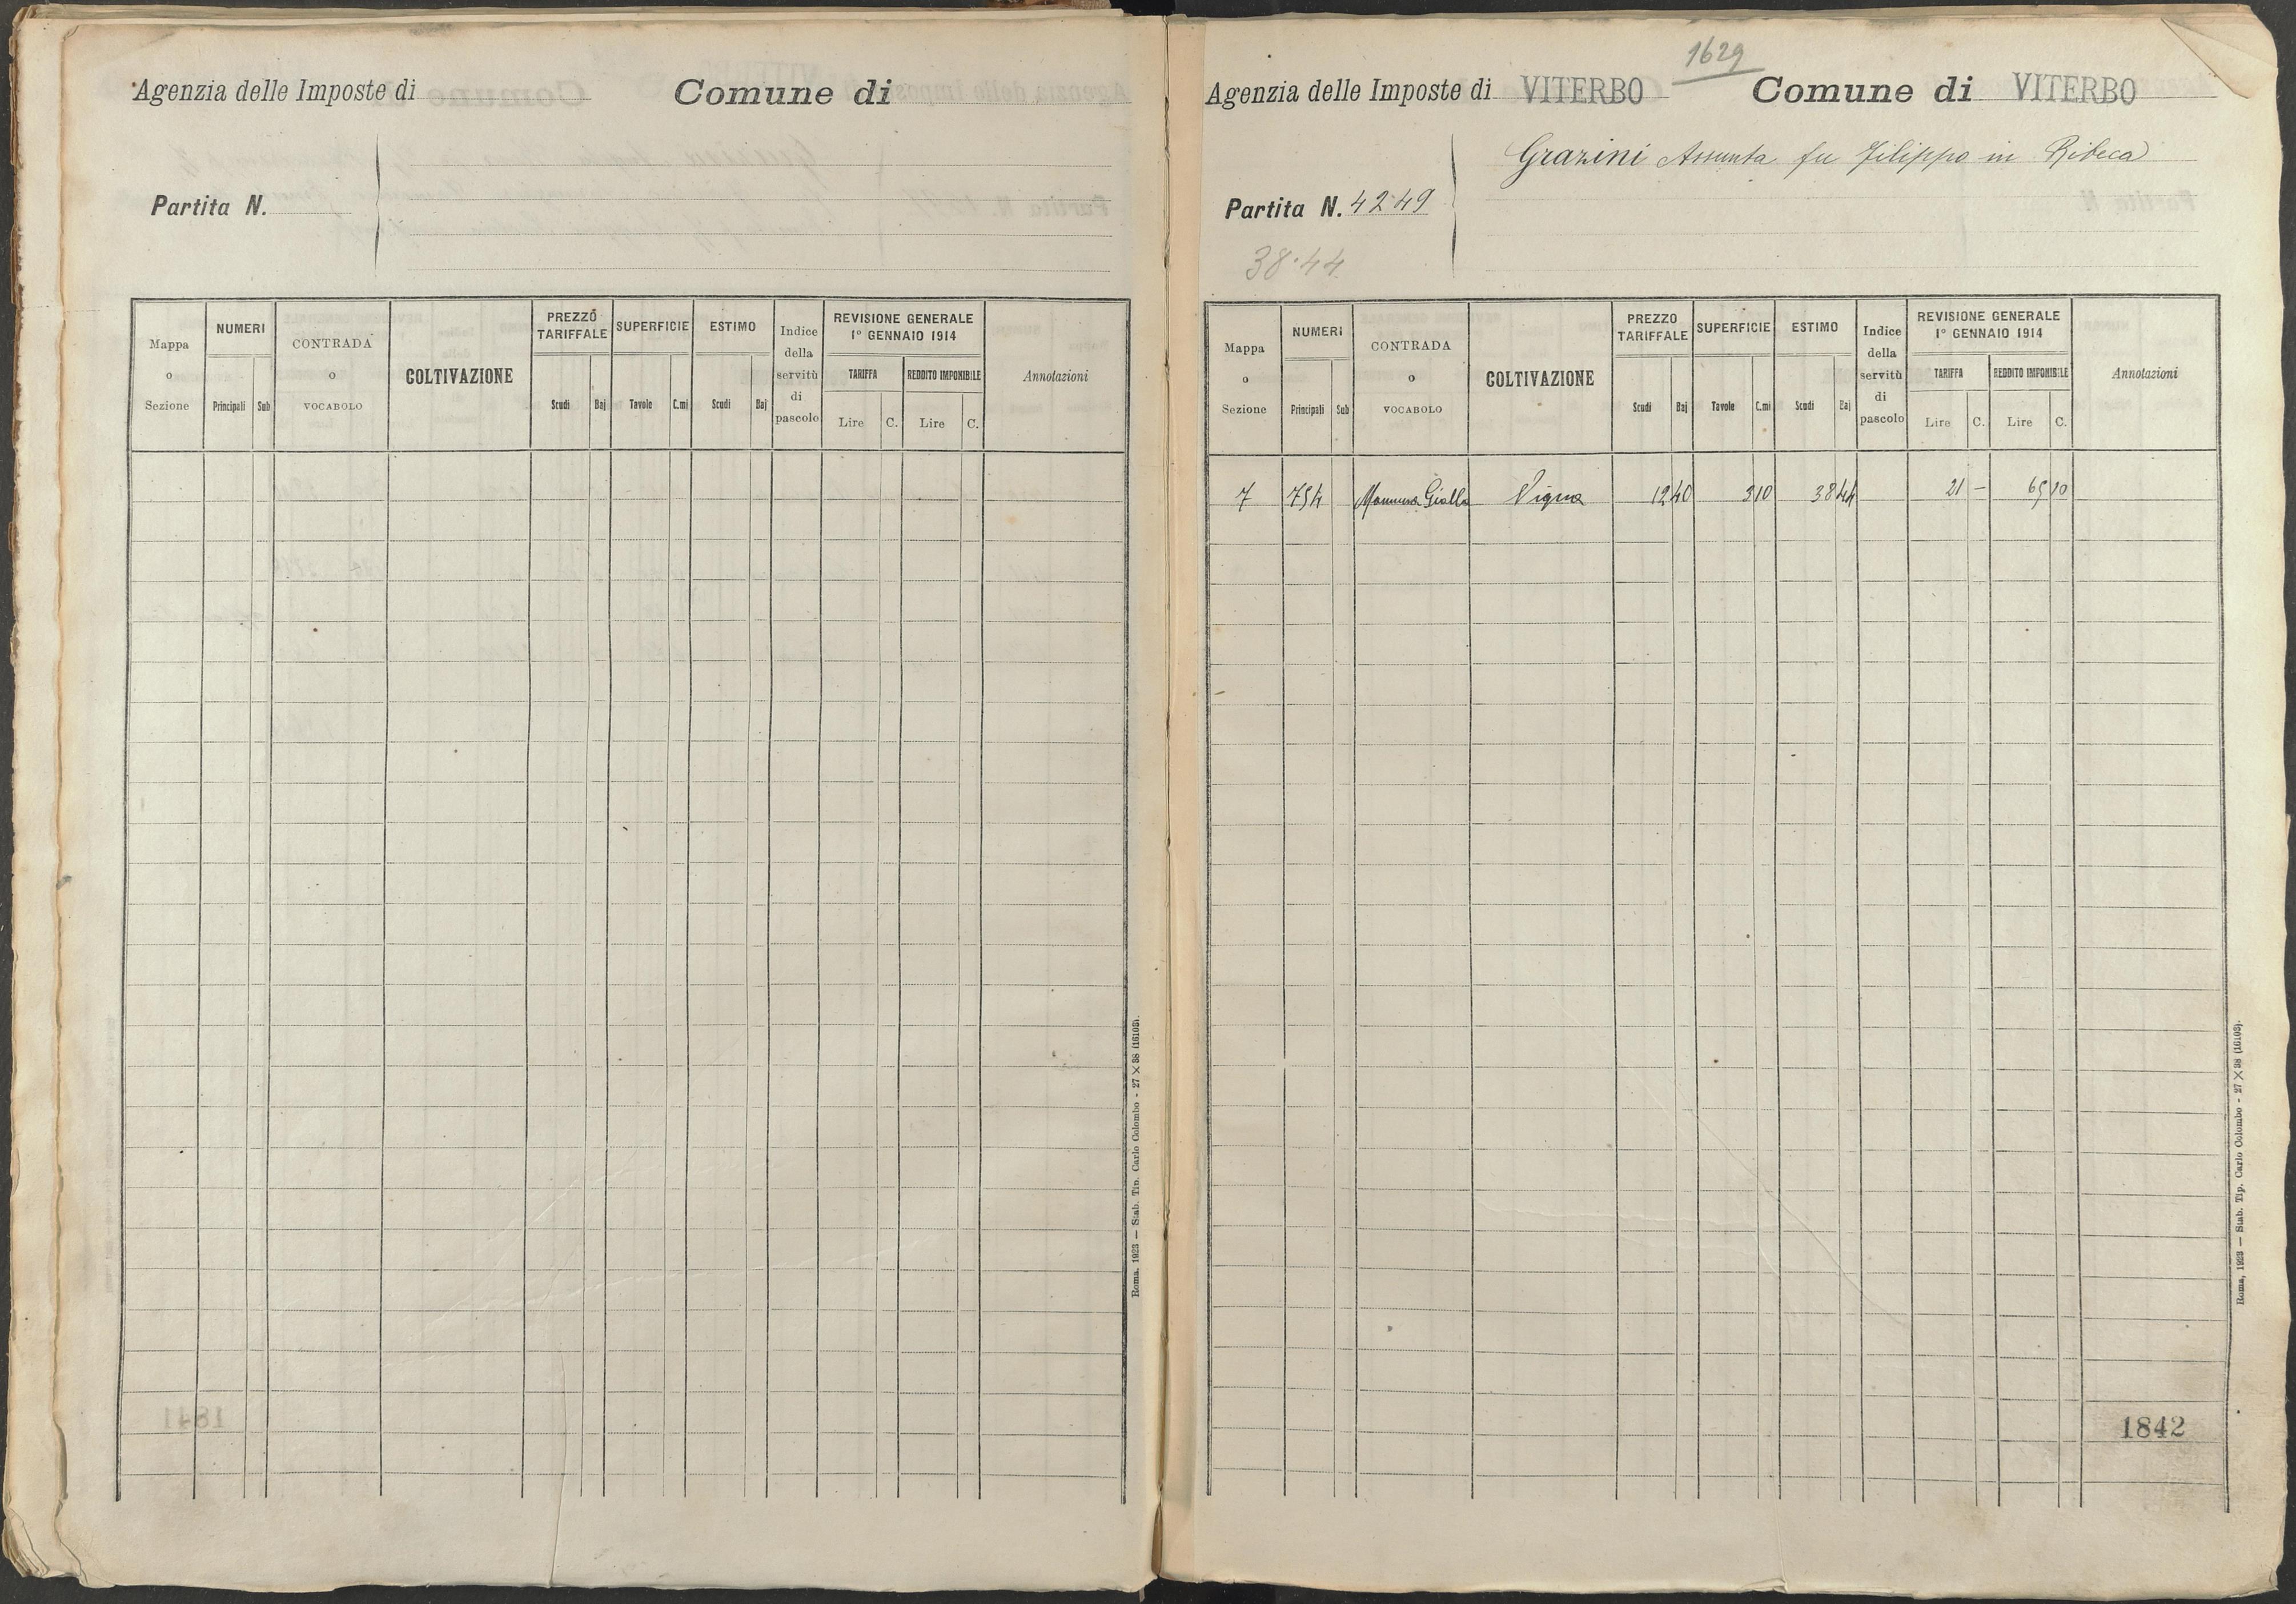 Agenzia delle Imposte di Comune di
Partita N.
Mappa o Sezione
NUMERI
Principali Sub
CONTRADA o VOCABOLO
COLTIVAZIONE
PREZZO TARIFFALE
Scudi Baj
SUPERFICIE
Tavole C.mi
ESTIMO
Scudi Baj
Indice della servitù di pascolo
REVISIONE GENERALE 1° GENNAIO 1914
TARIFFA
Lire C.
REDDITO IMPONIBILE
Lire C.
Annotazioni
1841
Roma, 1923 — Stab. Tip. Carlo Colombo - 27 × 38 (16103).
1629
Agenzia delle Imposte di VITERBO Comune di VITERBO
Grazini Assunta fu Filippo in Ribeca
Partita N. 4249
38.44
Mappa o Sezione
NUMERI
Principali Sub
CONTRADA o VOCABOLO
COLTIVAZIONE
PREZZO TARIFFALE
Scudi Baj
SUPERFICIE
Tavole C.mi
ESTIMO
Scudi Baj
Indice della servitù di pascolo
REVISIONE GENERALE 1° GENNAIO 1914
TARIFFA
Lire C.
REDDITO IMPONIBILE
Lire C.
Annotazioni
7 754 Gialla Vigna 12 40 3 10 38 44 21 — 65 10
1842
Roma, 1923 — Stab. Tip. Carlo Colombo - 27 × 38 (16103).